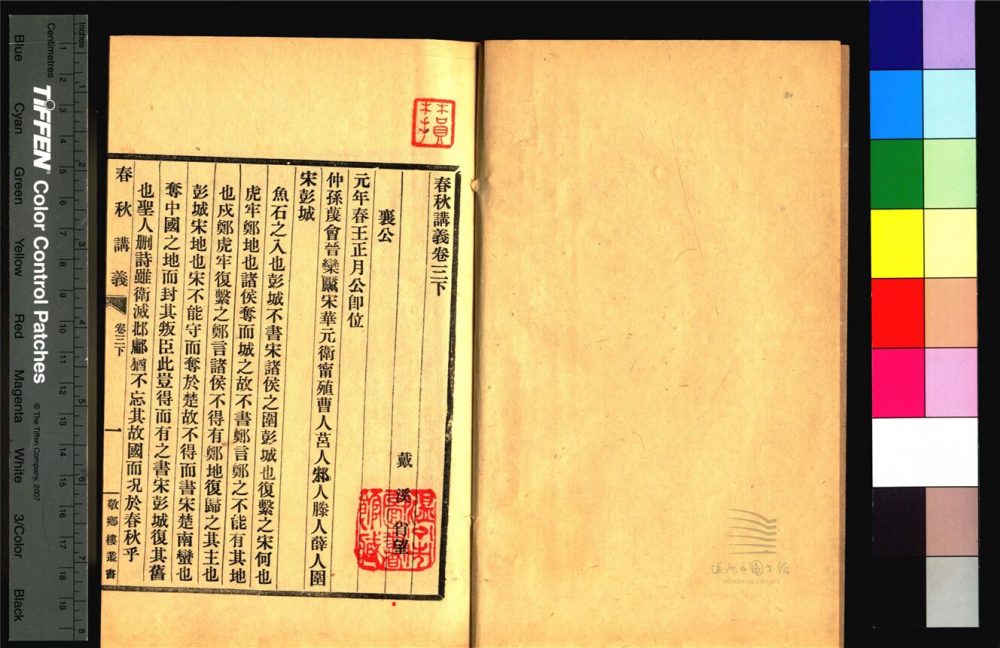 春秋講義卷三下
戴溪
襄公
元年春王正月公卽位
仲孫蔑會晉欒黶宋華元衛甯殖曹人莒人邾人滕人薛人圍
宋彭城
魚石之入也彭城不書宋諸侯之圍彭城也復繫之宋何也
虎牢鄭地也諸侯奪而城之故不書鄭言鄭之不能有其地
也戍鄭虎牢復繫之鄭言諸侯不得有鄭地復歸之其主也
彭城宋地也宋不能守而奪於楚故不得而書宋楚南蠻也
奪中國之地而封其叛臣此豈得而有之書宋彭城復其舊
也聖人刪詩雖衛滅邶鄘猶不忘其故國而况於春秋乎
春秋講義
卷三下
一
敬鄉樓叢書
溫州市圖書館
WENZHOU LIBRARY
Inches
Centimetres
TIFFEN® Color Control Patches
© The Tiffen Company, 2007
Blue
Cyan
Green
Yellow
Red
Magenta
White
3/Color
Black
1 2 3 4 5 6 7 8 9 10 11 12 13 14 15 16 17 18 19
1 2 3 4 5 6 7 8